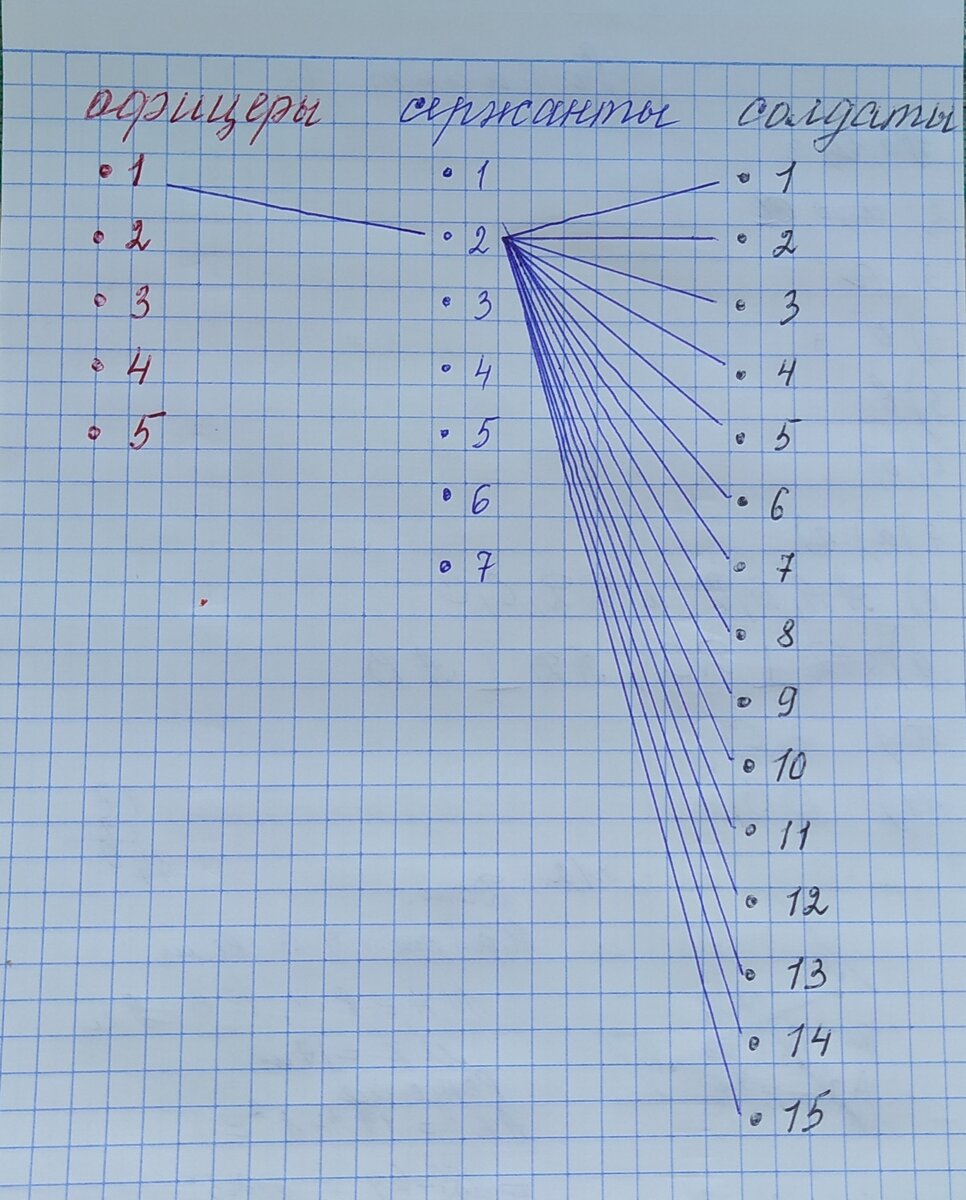 офицеры сержанты солдаты
1 1 1
2 2 2
3 3 3
4 4 4
5 5 5
6 6
7 7
8
9
10
11
12
13
14
15